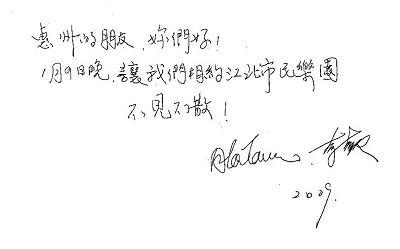 惠州的朋友,妳們好!
1月9日晚,讓我們相約江北市民樂園
不見不散!
Alan Tam
2009.